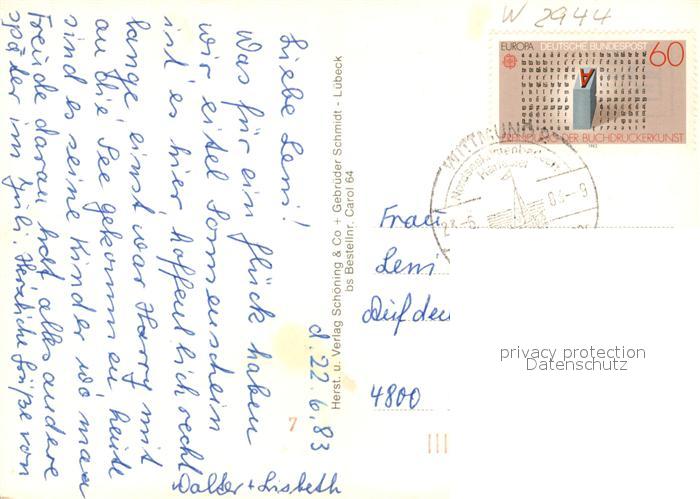 W 2944
EUROPA DEUTSCHE BUNDESPOST 60
ERFINDUNG DER BUCHDRUCKERKUNST
1983
WITTMUND
Carolinensiel
d. 22.6.83
Liebe Leni!
Was für ein Glück haben
wir eitel Sonnenschein
ist es hier hoffentlich recht
lange einst war Harry mit
an die See gekommen heute
sind es seine Kinder wo man
Freude daran hat alles andere
später im Juli. Herzliche Grüße von
Walter + Lisbeth
Herst. u. Verlag Schöning & Co + Gebrüder Schmidt - Lübeck
bs Bestellnr. Carol 64
7
Frau
Leni
Auf den
4800
privacy protection
Datenschutz